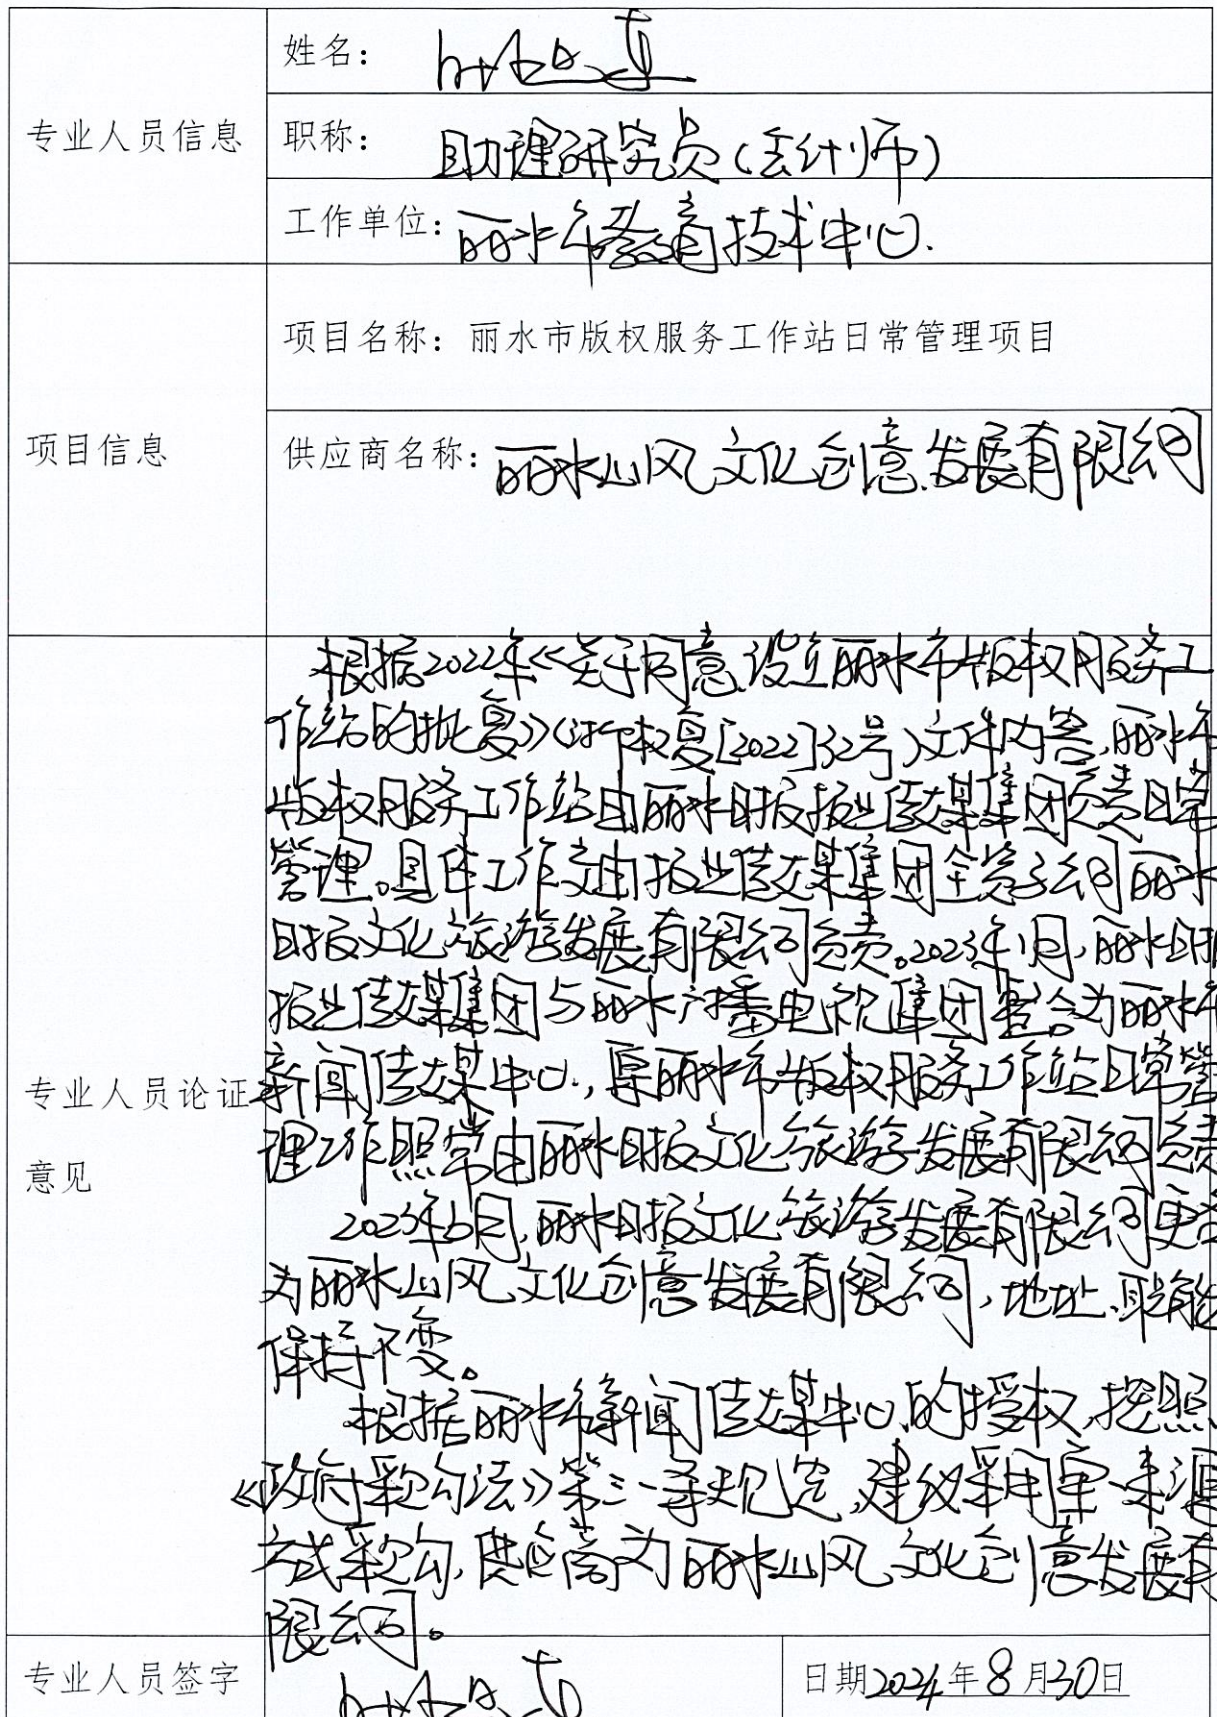 姓名：
专业人员信息
职称： 助理研究员(会计师)
工作单位：丽水市教育技术中心.
项目名称：丽水市版权服务工作站日常管理项目
项目信息
供应商名称：丽水山风文化创意发展有限公司
根据2022年《关于同意设立丽水市版权服务工
作站的批复》(浙权复[2022]32号)文件内容,丽水市
版权服务工作站由丽水日报报业传媒集团负责日常
管理。具体工作交由报业传媒集团全资子公司丽水
日报文化旅游发展有限公司负责。2023年1月,丽水日报
报业传媒集团与丽水广播电视集团整合为丽水市
新闻传媒中心,原丽水市版权服务工作站日常管
理工作照常由丽水日报文化旅游发展有限公司负责
2023年6月,丽水日报文化旅游发展有限公司更名
为丽水山风文化创意发展有限公司,地址、职能
保持不变。
根据丽水市新闻传媒中心的授权,按照
《政府采购法》第三一条规定,建议采用单一来源
方式采购,供应商为丽水山风文化创意发展有
限公司。
专业人员论证
意见
专业人员签字
日期2024年8月30日